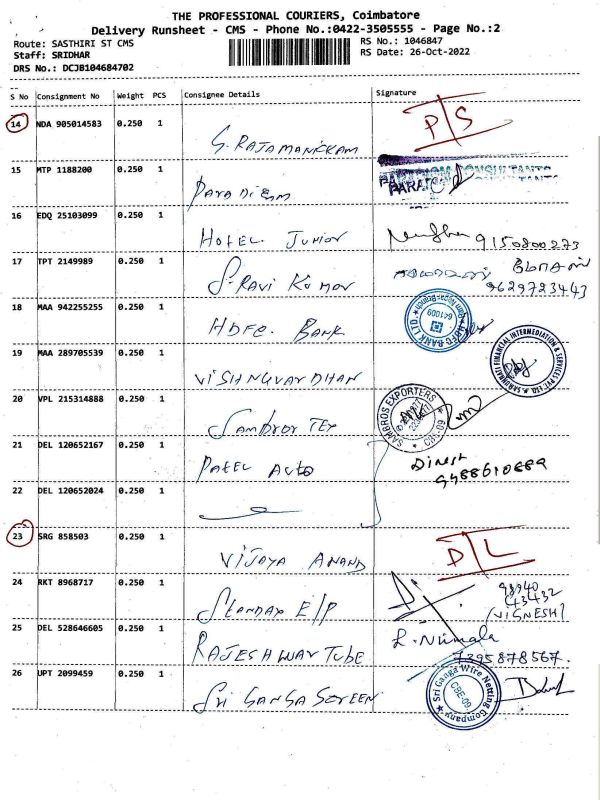 THE PROFESSIONAL COURIERS, Coimbatore
Delivery Runsheet - CMS - Phone No.:0422-3505555 - Page No.:2
Route: SASTHIRI ST CMS
RS No.: 1046847
Staff: SRIDHAR
RS Date: 26-Oct-2022
DRS No.: DCJB104684702
S No Consignment No Weight PCS Consignee Details Signature
14 NDA 905014583 0.250 1 G. RAJAMANICKAM P/S
15 MTP 1188200 0.250 1 PARADIGM PARADIGM CONSULTANTS
16 EDQ 25103099 0.250 1 HOTEL JUNIOR 9150800273
17 TPT 2149989 0.250 1 S. RAVI KUMAR 9629723443
18 MAA 942255255 0.250 1 HDFC BANK HDFC BANK LTD. 641009
19 MAA 289705539 0.250 1 VISHNUVARDHAN FINANCIAL INTERMEDIATION & SERVICES PVT. LTD.
20 VPL 215314888 0.250 1 SAMBROS TEX SAMBROS EXPORTERS CBE-09
21 DEL 120652167 0.250 1 PATEL AUTO DINESH
22 DEL 120652024 0.250 1
23 SRG 858503 0.250 1 VIJAYA ANAND D/L
24 RKT 8968717 0.250 1 STANDAX E/P 98940 43432 (VIGNESH)
25 DEL 528646605 0.250 1 RAJESHWAR TUBE L. Nirmala 7395878567.
26 UPT 2099459 0.250 1 SRI GANGA SCREEN Sri Ganga Wire Netting Company CBE-09.